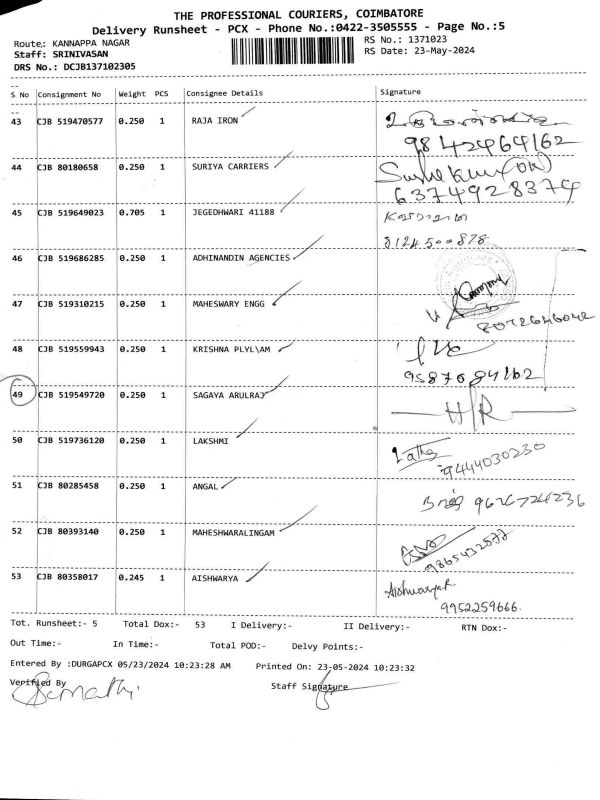 THE PROFESSIONAL COURIERS, COIMBATORE
Delivery Runsheet - PCX - Phone No.:0422-3505555 - Page No.:5
Route,: KANNAPPA NAGAR RS No.: 1371023
Staff: SRINIVASAN RS Date: 23-May-2024
DRS No.: DCJB137102305
S No Consignment No Weight PCS Consignee Details Signature
43 CJB 519470577 0.250 1 RAJA IRON
9842464162
44 CJB 80180658 0.250 1 SURIYA CARRIERS
6374928374
45 CJB 519649023 0.705 1 JEGEDHWARI 41188
8124500878
46 CJB 519686285 0.250 1 ADHINANDIN AGENCIES
47 CJB 519310215 0.250 1 MAHESWARY ENGG
8072646042
48 CJB 519559943 0.250 1 KRISHNA PLYL\AM
9587084162
49 CJB 519549720 0.250 1 SAGAYA ARULRAJ
H/R
50 CJB 519736120 0.250 1 LAKSHMI
Latha
9444030230
51 CJB 80285458 0.250 1 ANGAL
9626724236
52 CJB 80393140 0.250 1 MAHESHWARALINGAM
9865432577
53 CJB 80358017 0.245 1 AISHWARYA
Aishwarya.R.
9952259666.
Tot. Runsheet:- 5 Total Dox:- 53 I Delivery:- II Delivery:- RTN Dox:-
Out Time:- In Time:- Total POD:- Delvy Points:-
Entered By :DURGAPCX 05/23/2024 10:23:28 AM Printed On: 23-05-2024 10:23:32
Verified By Staff Signature